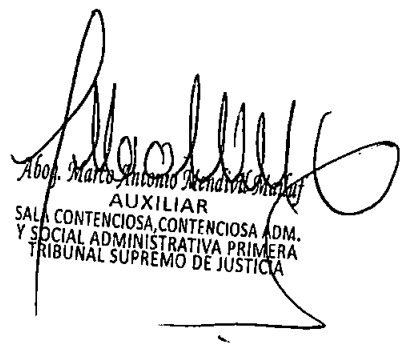 Abog. Marco Antonio Mendivil
AUXILIAR
SALA CONTENCIOSA, CONTENCIOSA ADM.
Y SOCIAL ADMINISTRATIVA PRIMERA
TRIBUNAL SUPREMO DE JUSTICIA